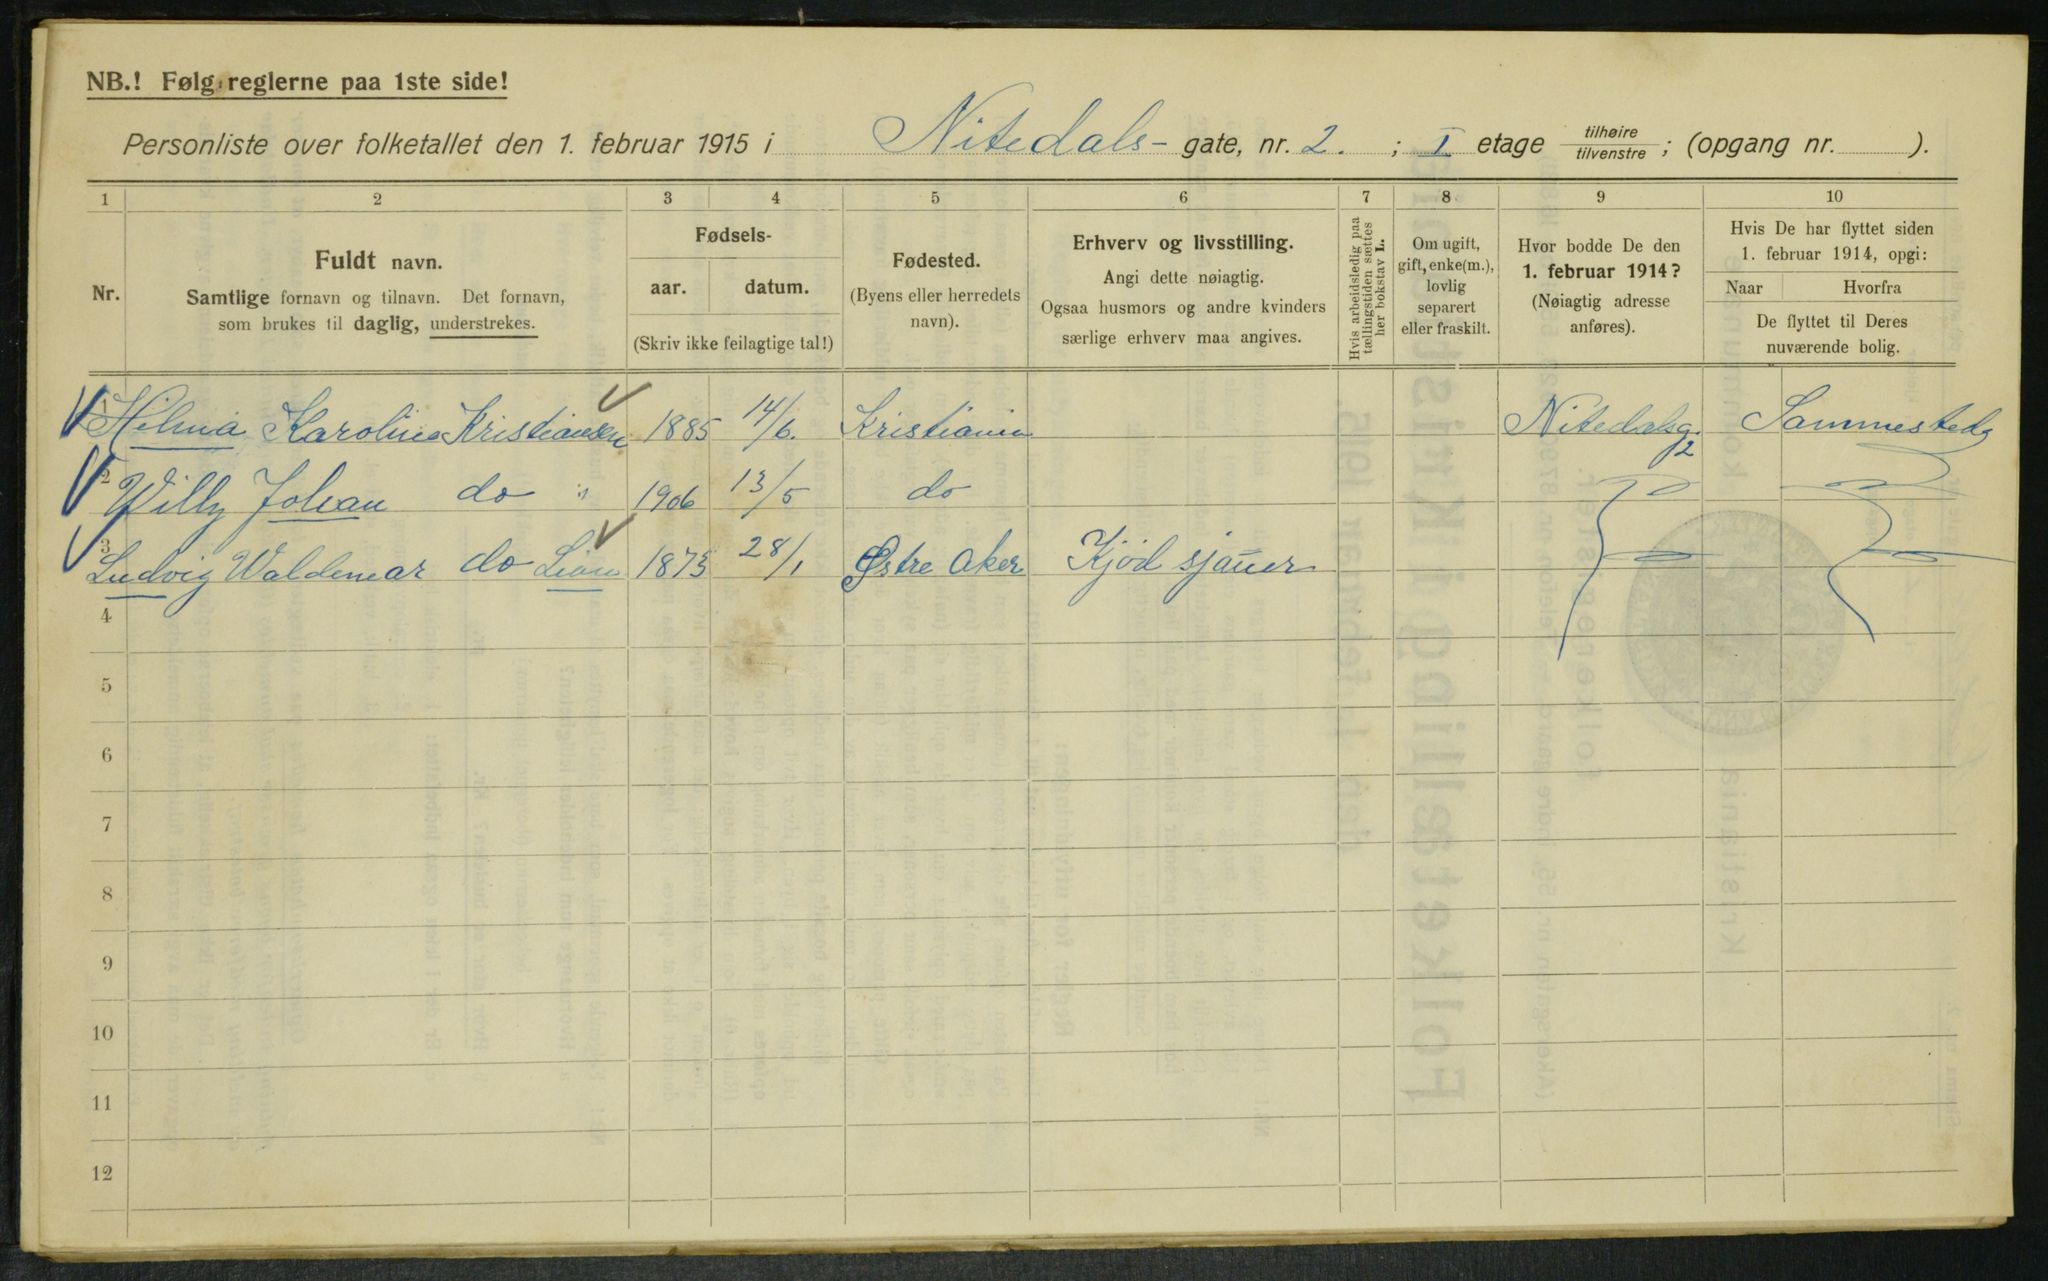 NB.! Følg reglerne paa 1ste side!
Personliste over folketallet den 1. februar 1915 i Nitedals- gate, nr. 2. ; I etage tilhøire / tilvenstre ; (opgang nr. ).
1 2 3 4 5 6 7 8 9 10
Nr.
Fuldt navn.
Samtlige fornavn og tilnavn. Det fornavn,
som brukes til daglig, understrekes.
Fødsels-
aar. datum.
(Skriv ikke feilagtige tal!)
Fødested.
(Byens eller herredets
navn).
Erhverv og livsstilling.
Angi dette nøiagtig.
Ogsaa husmors og andre kvinders
særlige erhverv maa angives.
Hvis arbeidsledig paa
tællingstiden sættes
her bokstav L.
Om ugift,
gift, enke(m.),
lovlig
separert
eller fraskilt.
Hvor bodde De den
1. februar 1914?
(Nøiagtig adresse
anføres).
Hvis De har flyttet siden
1. februar 1914, opgi:
Naar Hvorfra
De flyttet til Deres
nuværende bolig.
1 Hilma Karoline Kristiansen 1885 14/6. Kristiania Nitedalsg. 2 Sammested
2 Willy Johan do " 1906 13/5 do
3 Ludvig Waldemar do 1875 28/1 Østre Aker Kjød sjauer
4
5
6
7
8
9
10
11
12